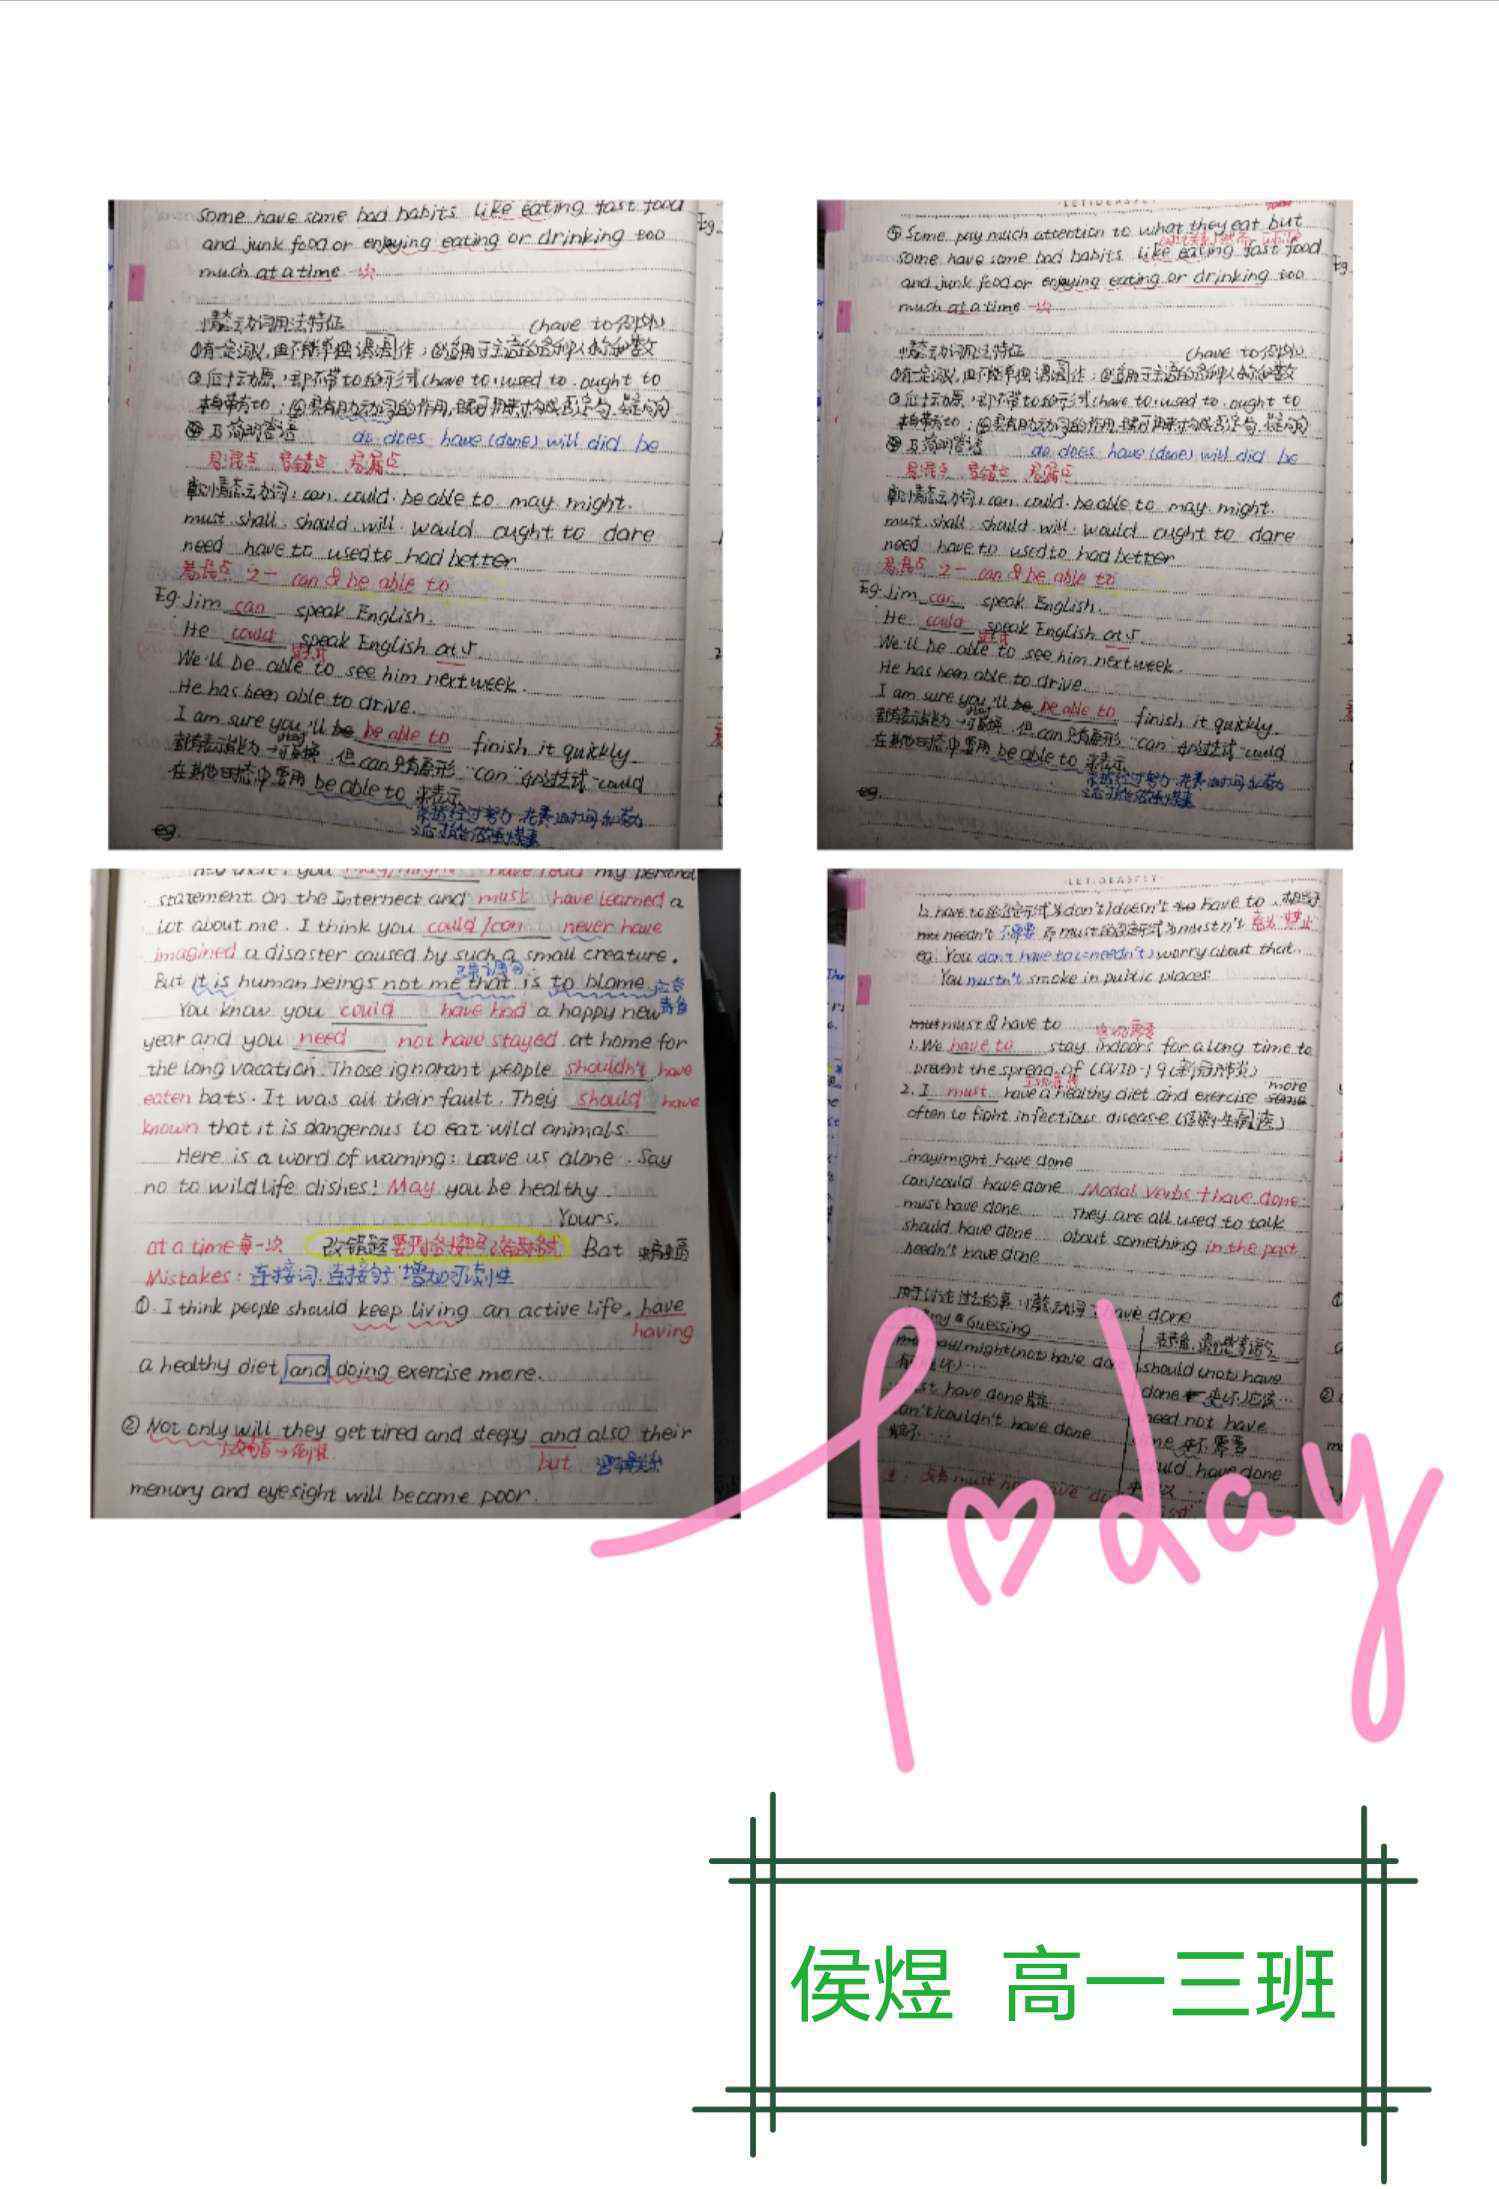 some have some bad habits like eating fast food
and junk food or enjoying eating or drinking too
much at a time 一次
情态动词用法特征 (have to 例外)
①有一定词义,但不能单独谓语作;②适用于主语的各种人称和数
③后+动原,即不带to的形式(have to. used to. ought to
本身带to;④具有助动词的作用,
及简明答语 do does have (done) will did be
易混点 易错点 易漏点
情态动词:can. could. be able to may. might.
must. shall. should. will. would ought to dare
need have to used to had better
易混点 2一 can & be able to
Eg. Jim can speak English.
He could speak English at 5.
We'll be able to see him next week.
He has been able to drive.
I am sure you'll be be able to finish it quickly
都有表示能力 可互换,但can只有原形"can"和过去式"could
在其他时态中要用 be able to 来表示
eg.
⑤ Some pay much attention to what they eat but
some have some bad habits like eating fast food
and junk food or enjoying eating or drinking too
much at a time 一次
情态动词用法特征 (have to 例外)
①有一定词义,但不能单独谓语作;②适用于主语的各种人称和数
③后+动原,即不带to的形式(have to. used to. ought to
本身带to;④具有助动词的作用,
及简明答语 do does have (done) will did be
易混点 易错点 易漏点
情态动词:can. could. be able to may. might.
must. shall. should will. would ought to dare
need have to used to had better
易混点 2一 can & be able to
Eg. Jim can speak English.
He could speak English at 5.
We'll be able to see him next week.
He has been able to drive.
I am sure you'll be be able to finish it quickly
都有表示能力 可互换,但can只有原形"can"和过去式"could
在其他时态中要用 be able to 来表示
eg.
you may/might have read my personal
statement on the Internect and must have learned a
lot about me. I think you could/can never have
imagined a disaster caused by such a small creature.
But it is human beings not me that is to blame.
You know you could have had a happy new
year and you need not have stayed at home for
the long vacation. Those ignorant people shouldn't have
eaten bats. It was all their fault. They should have
known that it is dangerous to eat wild animals.
Here is a word of warning: Leave us alone. Say
no to wildlife dishes! May you be healthy
Yours,
at a time 每一次 改错题 Bat
Mistakes: 连接词.连接句子 增加可读性
①. I think people should keep living an active life, have
having
a healthy diet and doing exercise more.
② Not only will they get tired and sleepy and also their
but
memory and eyesight will become poor.
LET IDEAS FLY
b. have to 的否定形式为don't/doesn't have to
needn't 不需要 而must的否定形式为mustn't 禁止
eg. You don't have to (=needn't) worry about that.
You mustn't smoke in public places
must & have to
1. We have to stay indoors for a long time to
prevent the spread of COVID-19 (新冠肺炎)
2. I must have a healthy diet and exercise more
often to fight infectious disease (传染性病)
may/might have done
can/could have done Modal verbs + have done:
must have done They are all used to talk
should have done about something in the past
needn't have done
用于讨论过去的事:情态动词+have done
Guessing
may/might (not) have done
should (not) have
done
have done
need not have
can't/couldn't have done
could have done
Today
侯煜 高一三班